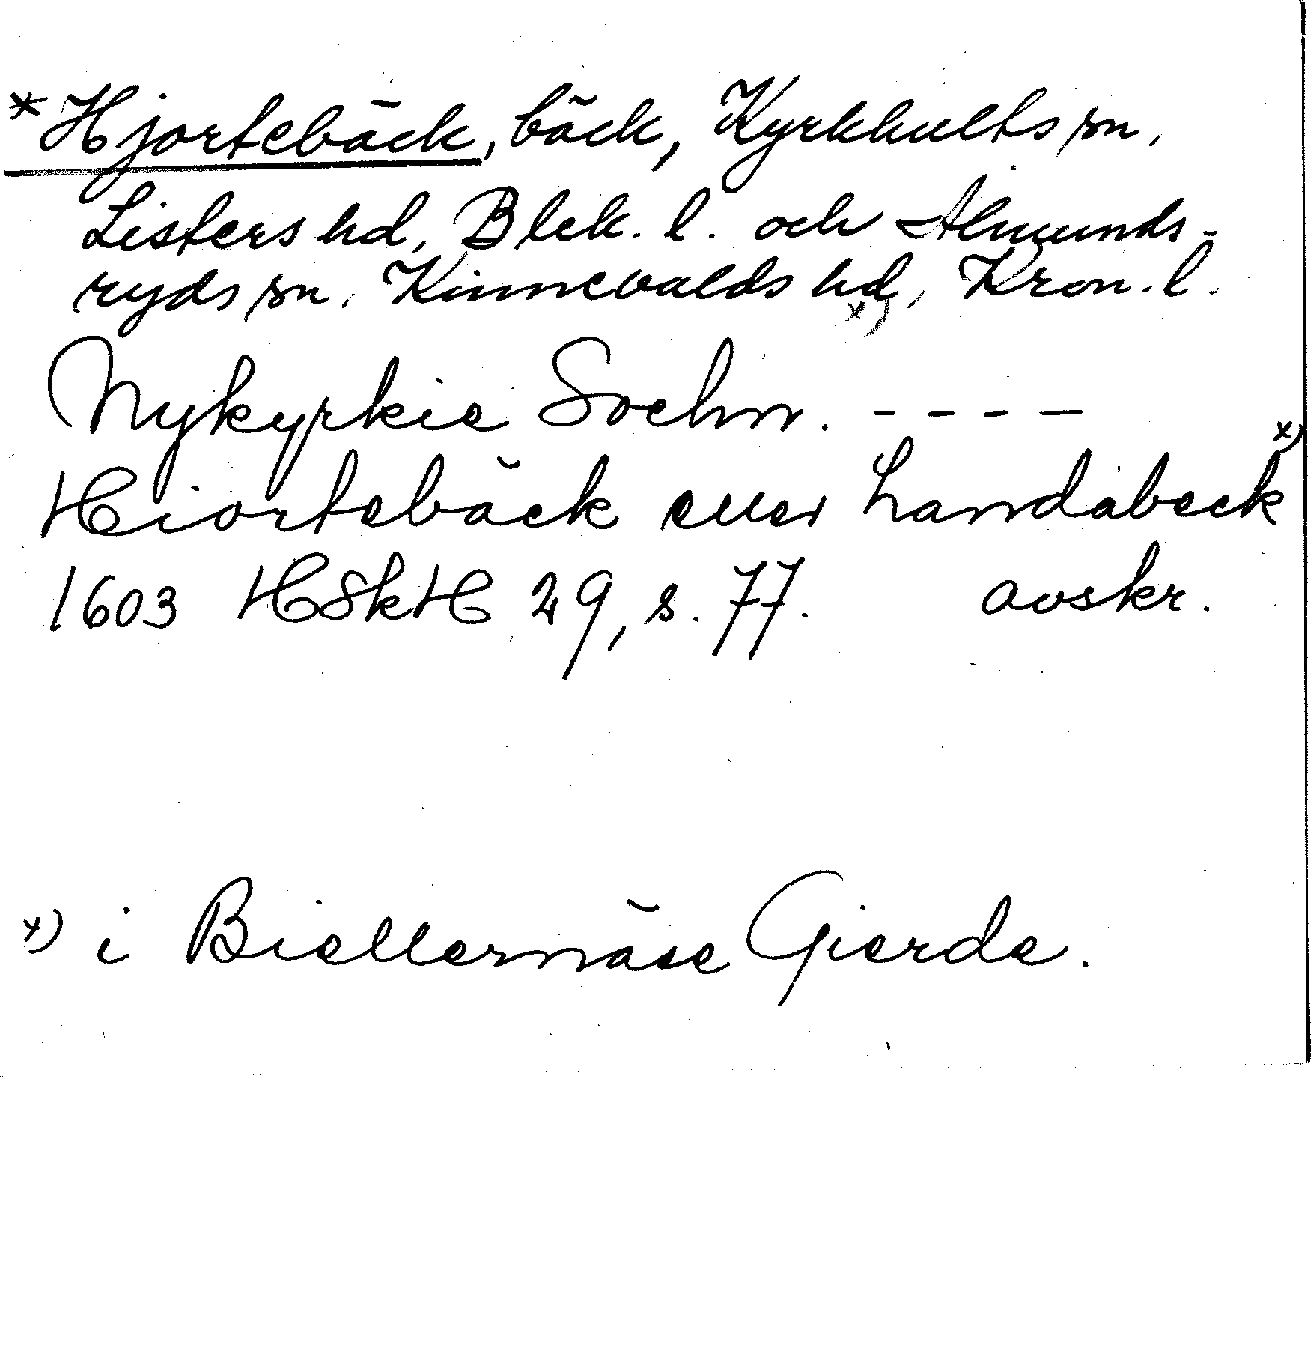 *Hjortebäck, bäck, Kyrkhults sn,
Listers hd, Blek. l. och Almunds-
ryds sn, Kinnevalds hd, Kron. l.
x)
Nykyrkie Sochn. - - - -
Hiortebäck eller Landabeck x)
1603 HSkH 29, s. 77. avskr.
x) i Biellernäse Gierde.